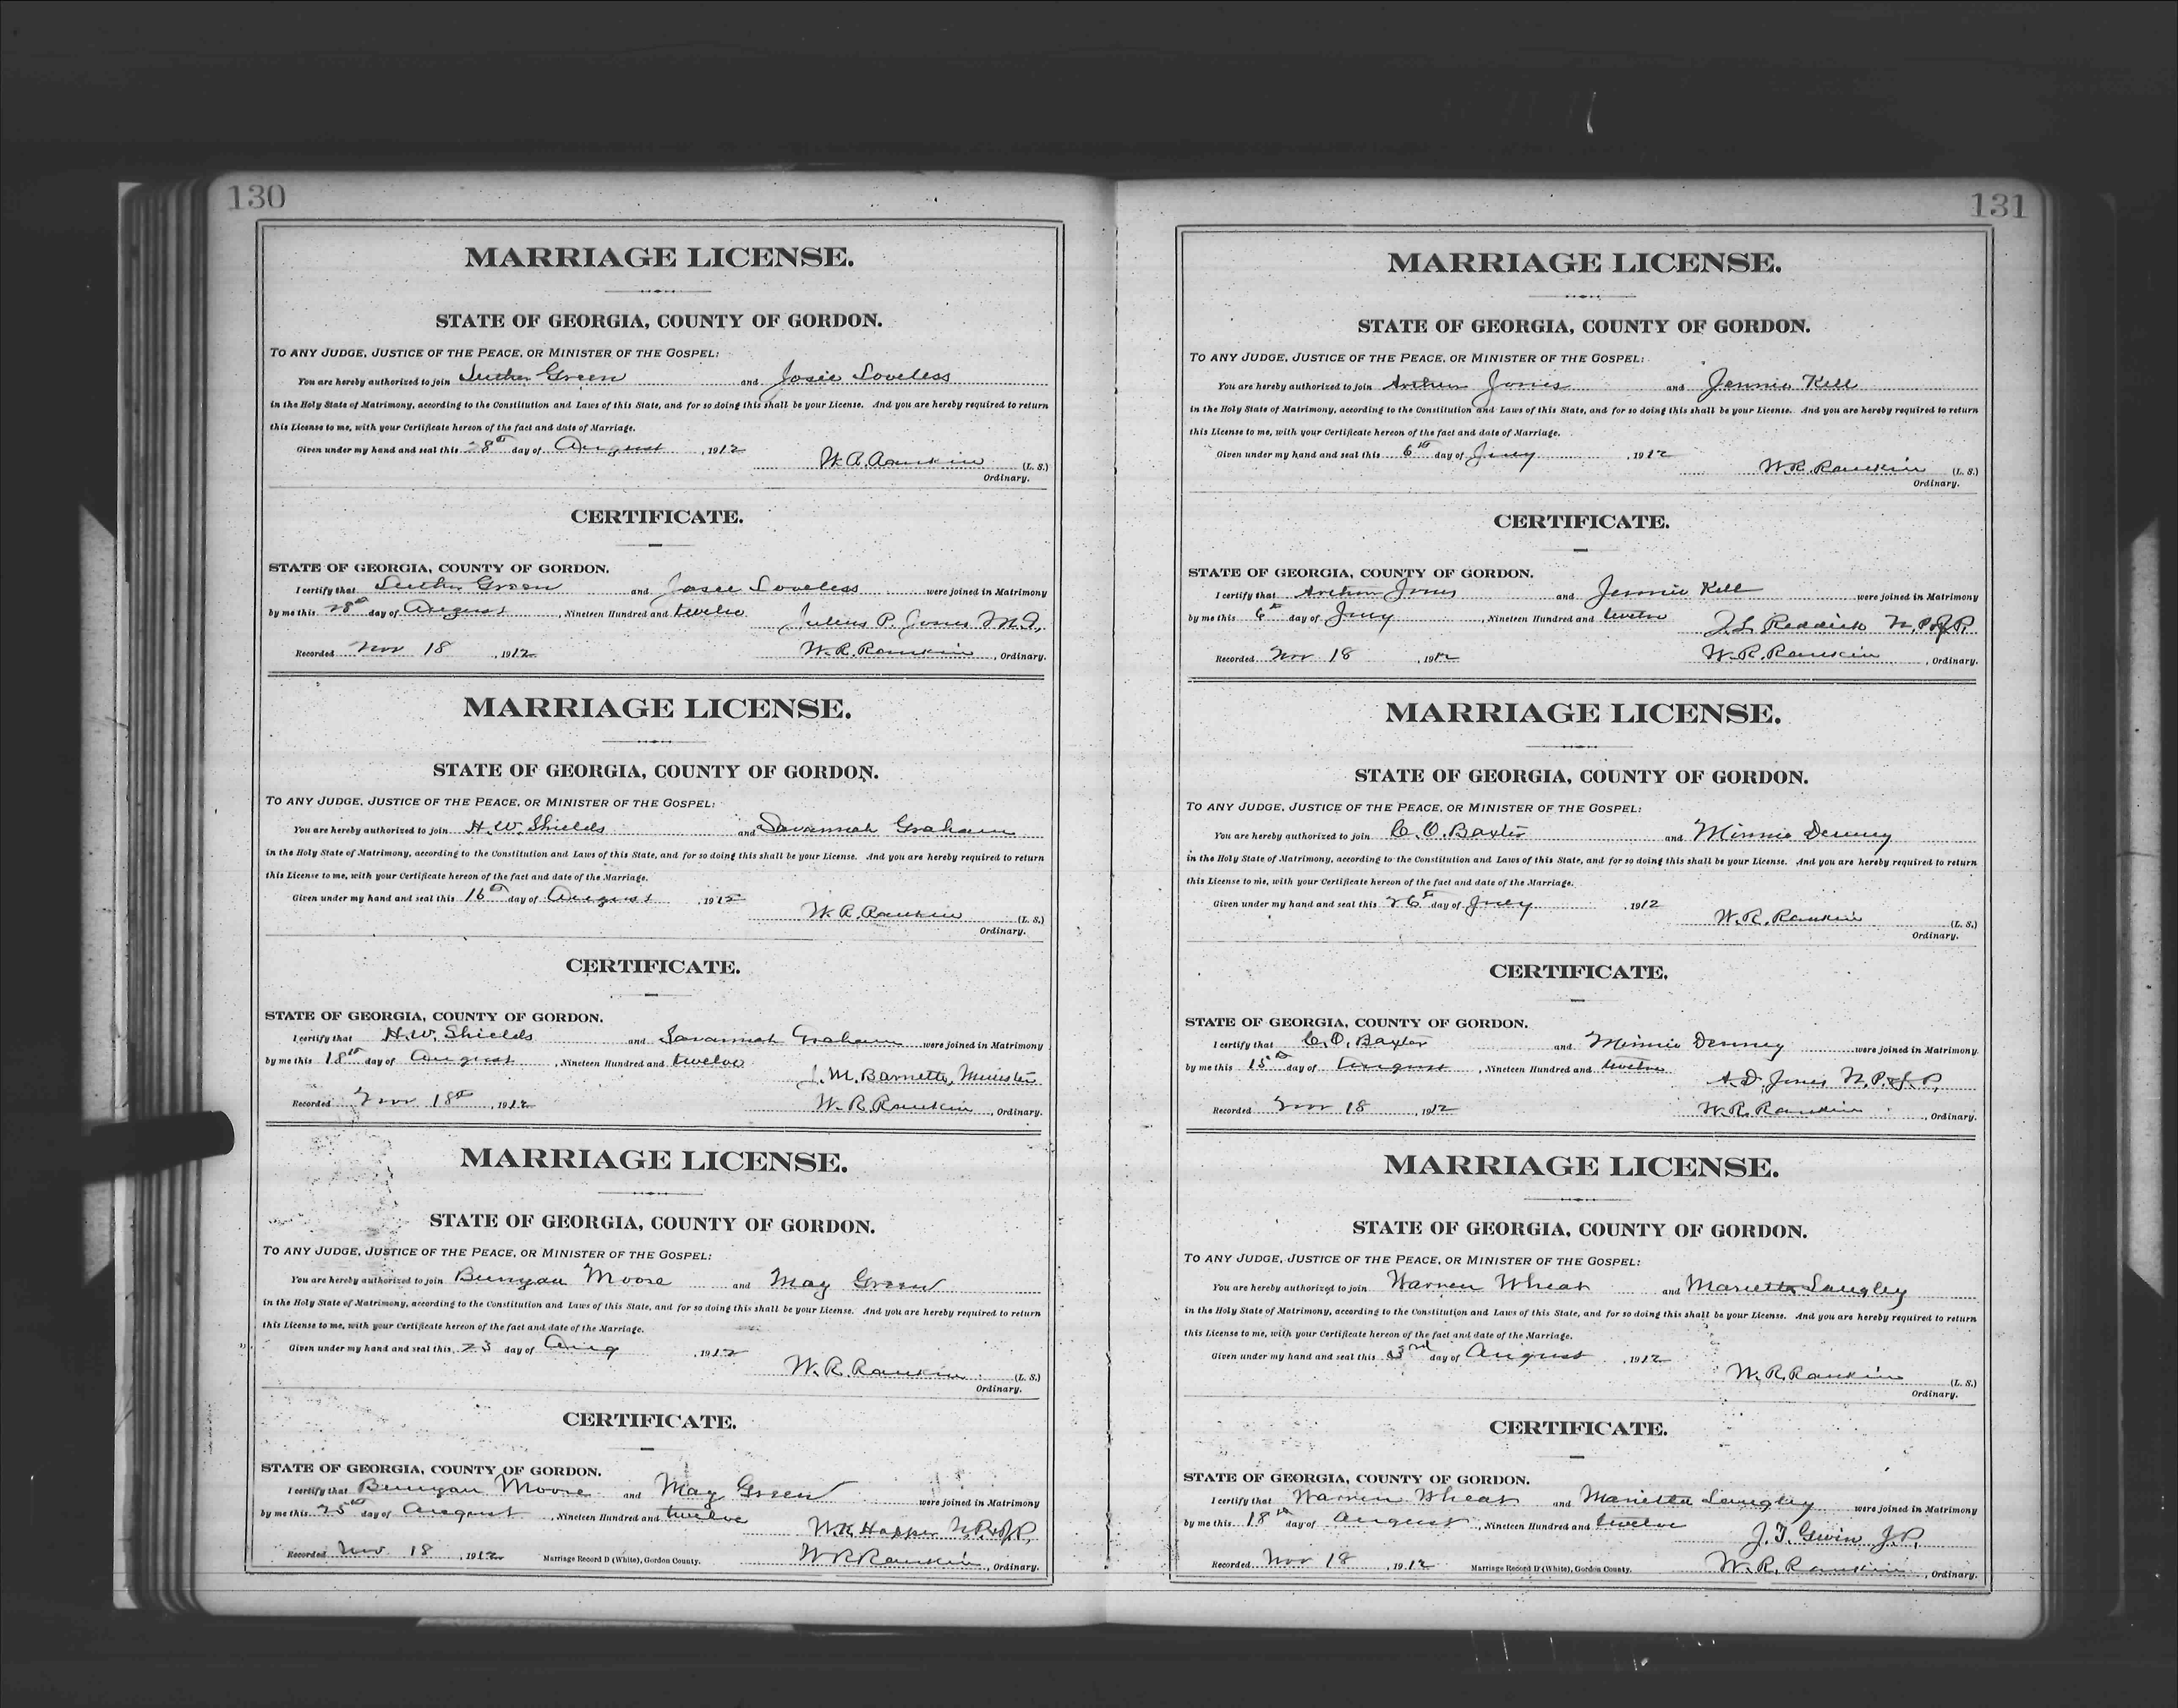 130
MARRIAGE LICENSE.
STATE OF GEORGIA, COUNTY OF GORDON.
TO ANY JUDGE, JUSTICE OF THE PEACE, OR MINISTER OF THE GOSPEL:
You are hereby authorized to join Luther Green and Josie Loveless
in the Holy State of Matrimony, according to the Constitution and Laws of this State, and for so doing this shall be your License. And you are hereby required to return
this License to me, with your Certificate hereon of the fact and date of Marriage.
Given under my hand and seal this 28th day of August, 1912
W. R. Rankin (L. S.)
Ordinary.
CERTIFICATE.
STATE OF GEORGIA, COUNTY OF GORDON.
I certify that Luther Green and Josie Loveless were joined in Matrimony
by me this 28th day of August, Nineteen Hundred and twelve
Julius P. Jones M.G.
Recorded Nov 18, 1912 W. R. Rankin, Ordinary.
MARRIAGE LICENSE.
STATE OF GEORGIA, COUNTY OF GORDON.
TO ANY JUDGE, JUSTICE OF THE PEACE, OR MINISTER OF THE GOSPEL:
You are hereby authorized to join H. W. Shields and Savannah Graham
in the Holy State of Matrimony, according to the Constitution and Laws of this State, and for so doing this shall be your License. And you are hereby required to return
this License to me, with your Certificate hereon of the fact and date of the Marriage.
Given under my hand and seal this 16th day of August, 1912
W. R. Rankin (L. S.)
Ordinary.
CERTIFICATE.
STATE OF GEORGIA, COUNTY OF GORDON.
I certify that H. W. Shields and Savannah Graham were joined in Matrimony
by me this 18th day of August, Nineteen Hundred and twelve
J. M. Barnette, Minister
Recorded Nov 18th, 1912 W. R. Rankin, Ordinary.
MARRIAGE LICENSE.
STATE OF GEORGIA, COUNTY OF GORDON.
TO ANY JUDGE, JUSTICE OF THE PEACE, OR MINISTER OF THE GOSPEL:
You are hereby authorized to join Bunyan Moore and May Green
in the Holy State of Matrimony, according to the Constitution and Laws of this State, and for so doing this shall be your License. And you are hereby required to return
this License to me, with your Certificate hereon of the fact and date of the Marriage.
Given under my hand and seal this 23 day of Aug, 1912
W. R. Rankin (L. S.)
Ordinary.
CERTIFICATE.
STATE OF GEORGIA, COUNTY OF GORDON.
I certify that Bunyan Moore and May Green were joined in Matrimony
by me this 25th day of August, Nineteen Hundred and twelve
W. K. Hopper N.P.&J.P.
Recorded Nov 18, 1912 Marriage Record D (White), Gordon County. W R Rankin, Ordinary.
131
MARRIAGE LICENSE.
STATE OF GEORGIA, COUNTY OF GORDON.
TO ANY JUDGE, JUSTICE OF THE PEACE, OR MINISTER OF THE GOSPEL:
You are hereby authorized to join Arthur Jones and Jennie Kell
in the Holy State of Matrimony, according to the Constitution and Laws of this State, and for so doing this shall be your License. And you are hereby required to return
this License to me, with your Certificate hereon of the fact and date of Marriage.
Given under my hand and seal this 6th day of July, 1912
W. R. Rankin (L. S.)
Ordinary.
CERTIFICATE.
STATE OF GEORGIA, COUNTY OF GORDON.
I certify that Arthur Jones and Jennie Kell were joined in Matrimony
by me this 6th day of July, Nineteen Hundred and twelve
J. L. Reddick N.P.&J.P.
Recorded Nov 18, 1912 W. R. Rankin, Ordinary.
MARRIAGE LICENSE.
STATE OF GEORGIA, COUNTY OF GORDON.
TO ANY JUDGE, JUSTICE OF THE PEACE, OR MINISTER OF THE GOSPEL:
You are hereby authorized to join C. O. Baxter and Minnie Denney
in the Holy State of Matrimony, according to the Constitution and Laws of this State, and for so doing this shall be your License. And you are hereby required to return
this License to me, with your Certificate hereon of the fact and date of the Marriage.
Given under my hand and seal this 26th day of July, 1912
W. R. Rankin (L. S.)
Ordinary.
CERTIFICATE.
STATE OF GEORGIA, COUNTY OF GORDON.
I certify that C. O. Baxter and Minnie Denney were joined in Matrimony
by me this 15th day of August, Nineteen Hundred and twelve
A. D. Jones N.P.&J.P.
Recorded Nov 18, 1912 W. R. Rankin, Ordinary.
MARRIAGE LICENSE.
STATE OF GEORGIA, COUNTY OF GORDON.
TO ANY JUDGE, JUSTICE OF THE PEACE, OR MINISTER OF THE GOSPEL:
You are hereby authorized to join Warren Wheat and Marietta Langley
in the Holy State of Matrimony, according to the Constitution and Laws of this State, and for so doing this shall be your License. And you are hereby required to return
this License to me, with your Certificate hereon of the fact and date of the Marriage.
Given under my hand and seal this day of August, 1912
W. R. Rankin (L. S.)
Ordinary.
CERTIFICATE.
STATE OF GEORGIA, COUNTY OF GORDON.
I certify that Warren Wheat and Marietta Langley were joined in Matrimony
by me this 18th day of August, Nineteen Hundred and twelve
J. T. Gwin J.P.
Recorded Nov 18, 1912 Marriage Record D (White), Gordon County. W. R. Rankin, Ordinary.